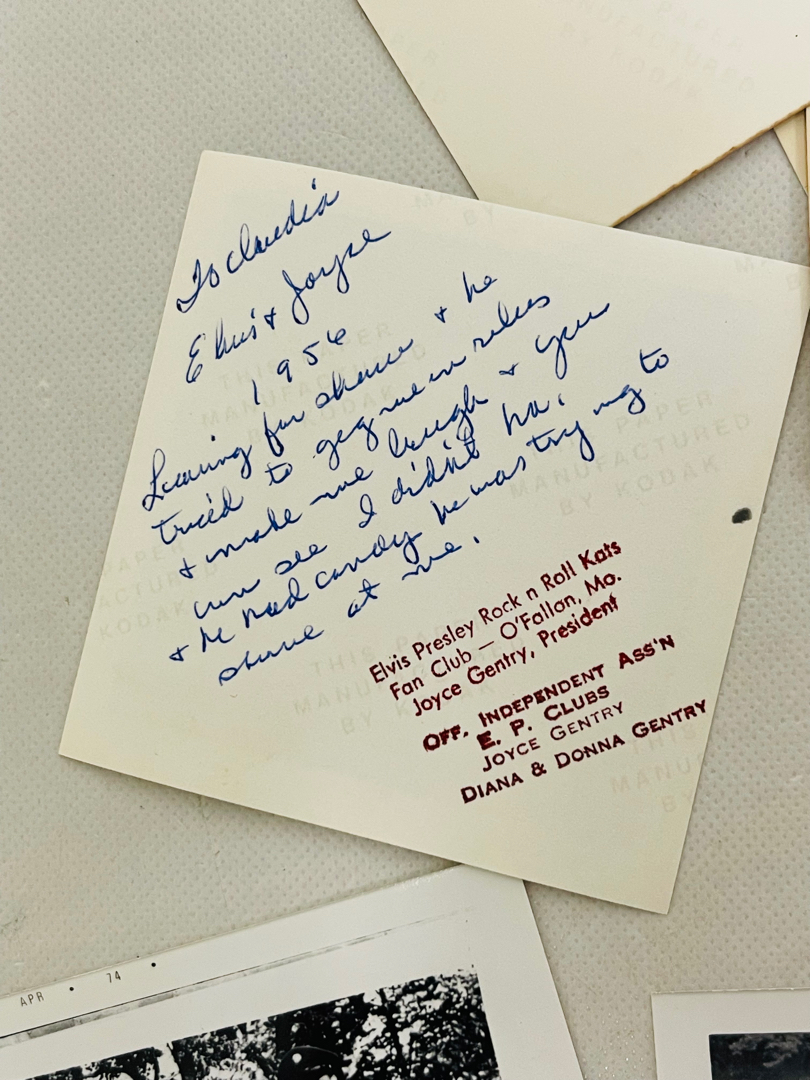 To Claudia
Elvis & Joyce
1956
Leaving for show & he
tried to get me in
& make me laugh & you
can see I didn't ha.
& he had candy he was trying to
shove at me.
Elvis Presley Rock n Roll Kats
Fan Club — O'Fallon, Mo.
Joyce Gentry, President
OFF. INDEPENDENT ASS'N
E. P. CLUBS
JOYCE GENTRY
DIANA & DONNA GENTRY
THIS PAPER
MANUFACTURED
BY KODAK
APR • 74 •